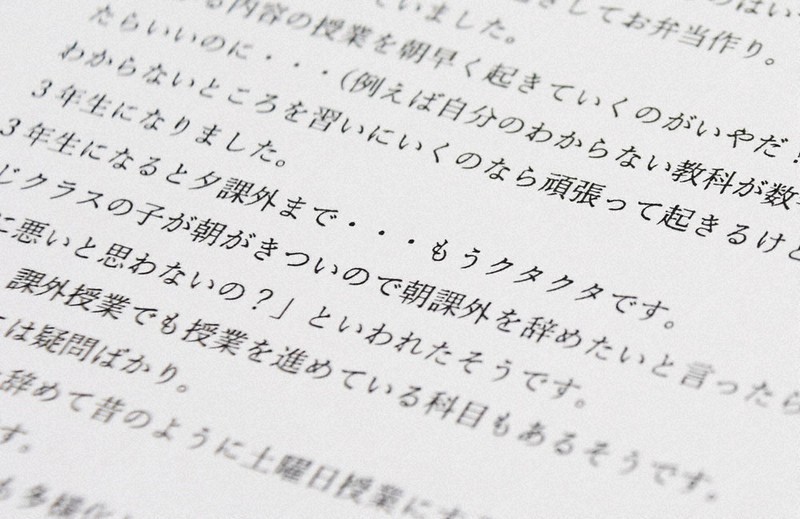 のはいや
きしてお弁当作り。
ていました。
る内容の授業を朝早く起きていくのがいやだ！
たらいいのに・・・(例えば自分のわからない教科が数
わからないところを習いにいくのなら頑張って起きるけど
3年生になりました。
3年生になると夕課外まで・・・もうクタクタです。
じクラスの子が朝がきついので朝課外を辞めたいと言ったら
に悪いと思わないの？」といわれたそうです。
課外授業でも授業を進めている科目もあるそうです。
ては疑問ばかり。
辞めて昔のように土曜日授業にす
す。
も多様化